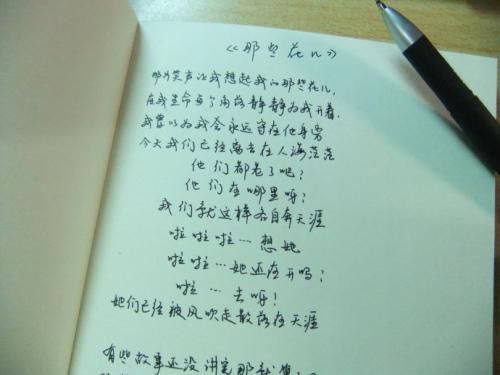 《那些花儿》
那片笑声让我想起我的那些花儿,
在我生命每个角落静静为我开着,
我曾以为我会永远守在他身旁
今天我们已经离去在人海茫茫
他们都老了吧?
他们在哪里呀?
我们就这样各自奔天涯
啦啦啦…想她
啦啦…她还在开吗?
啦…去呀!
她们已经被风吹走散落在天涯
有些故事还没讲完那就算了